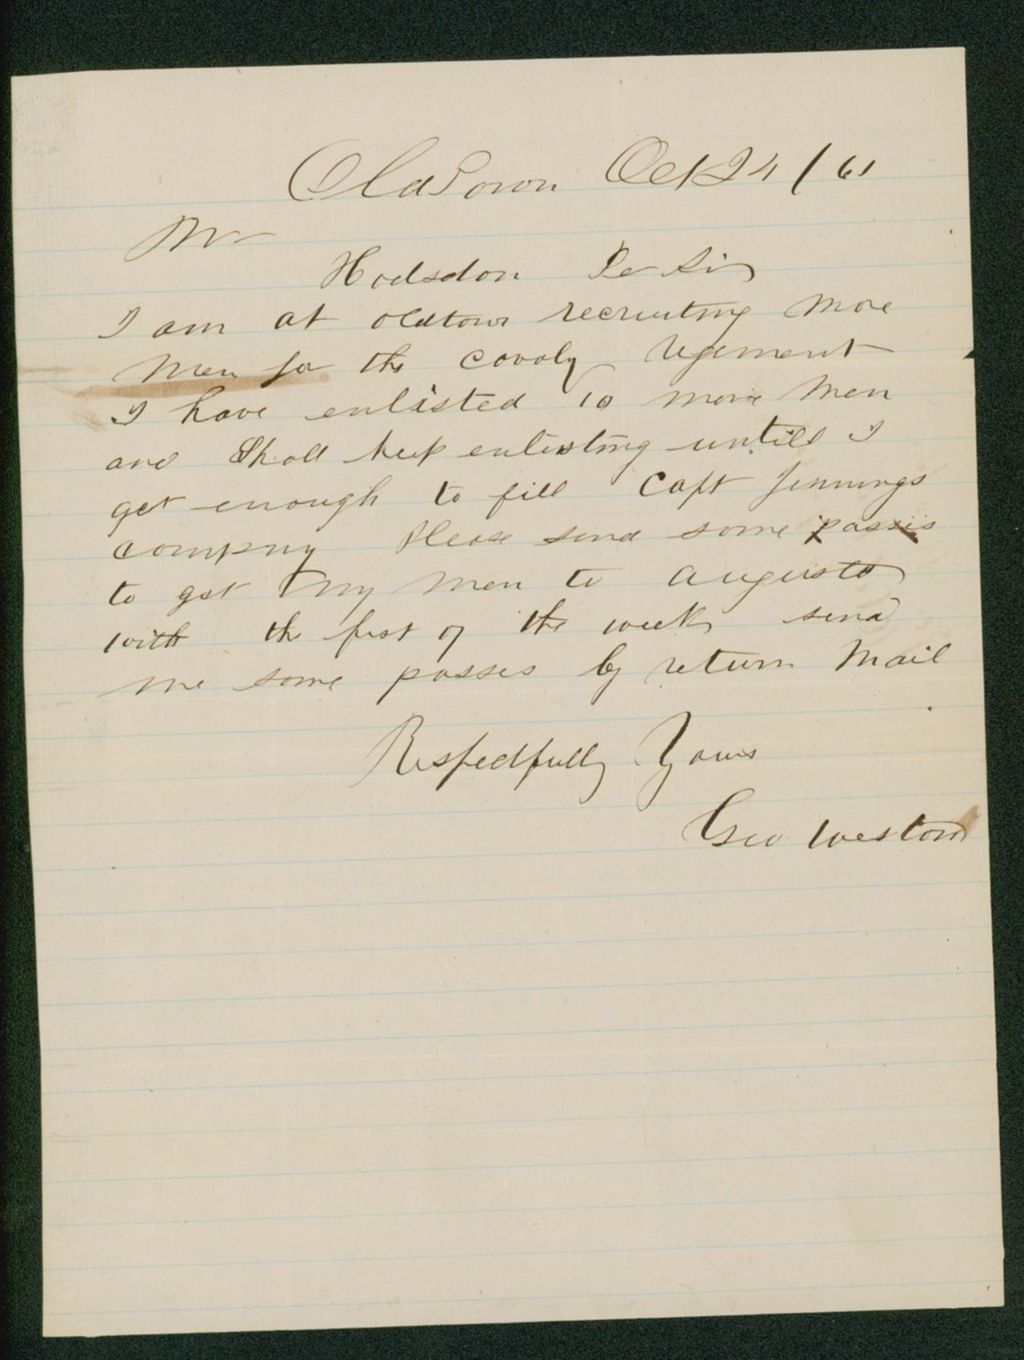 OldTown Oct 24/61
Mr
Hodsdon De Sir
I am at oldtown recruiting more
men for the cavaly regiment
I have enlisted 10 more men
and Shall keep enlisting untill I
get enough to fill Capt Jennings
company Please send some passes
to get my men to augusta
with the first of the week send
me some passes by return Mail
Respectfully Yours
Geo Weston